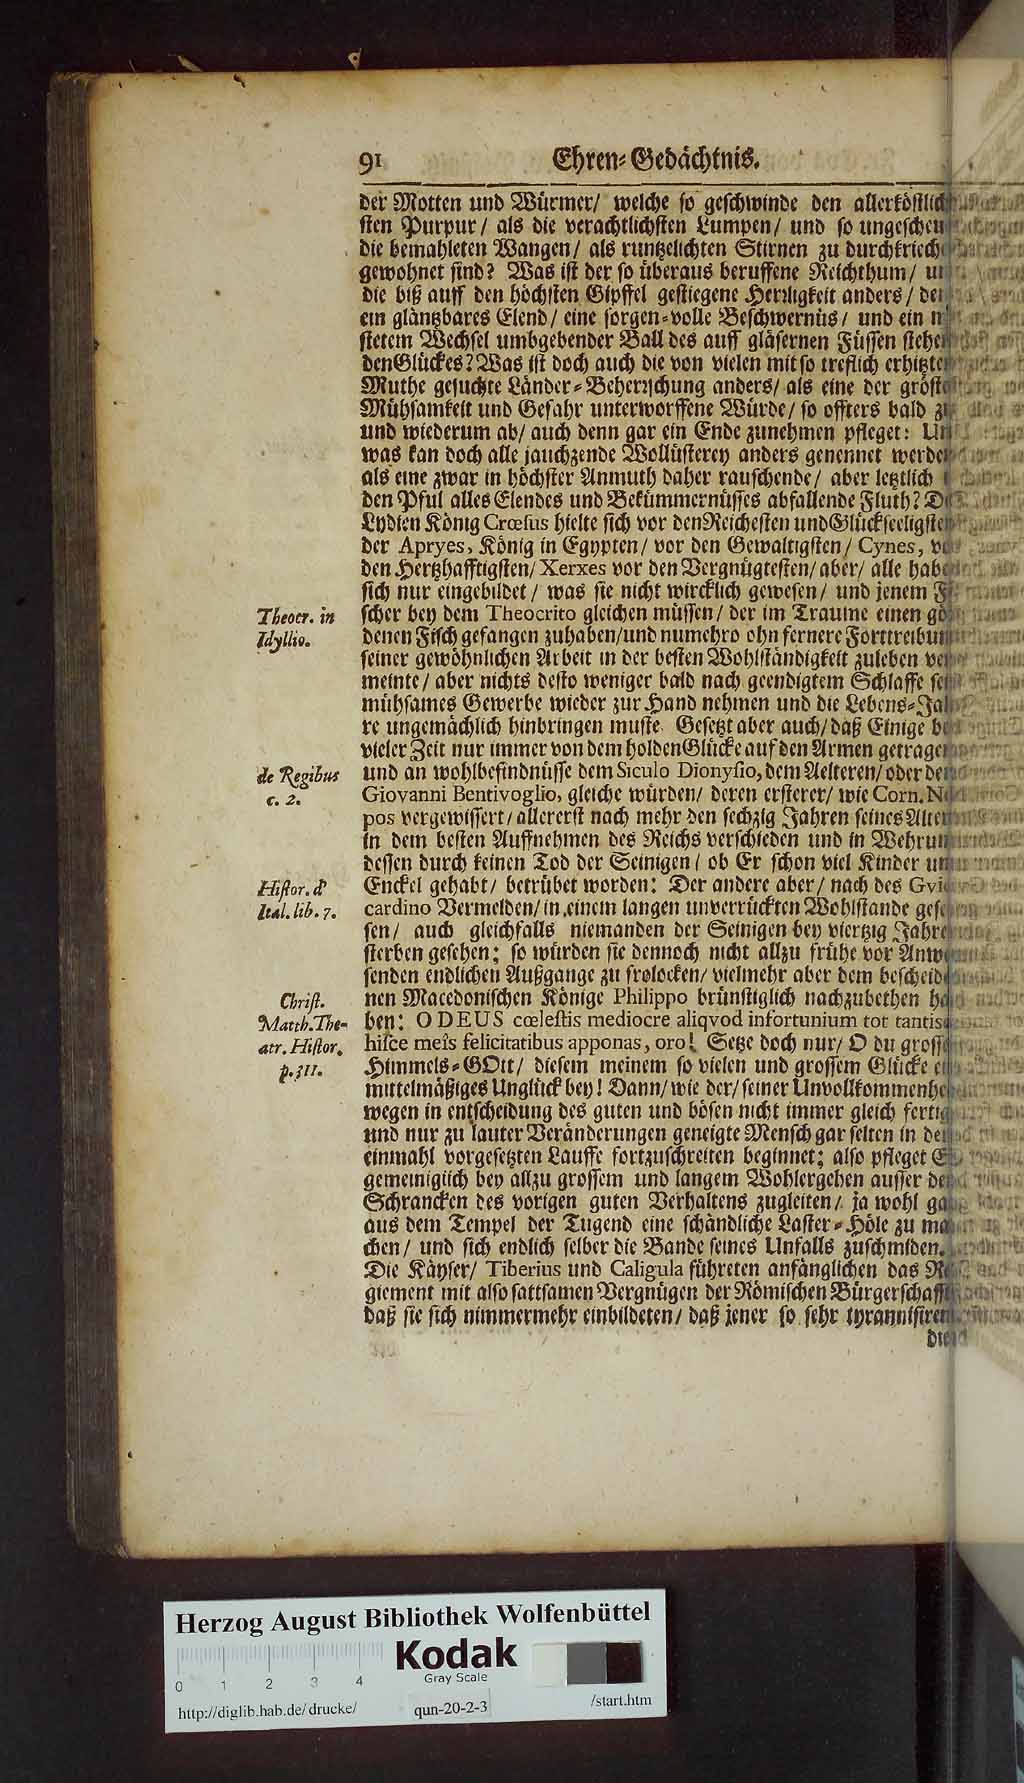 91 Ehren-Gedächtnis.
der Motten und Würmer/ welche so geschwinde den allerköstlich
sten Purpur/ als die verachtlichsten Lumpen/ und so ungescheu
die bemahleten Wangen/ als runtzelichten Stirnen zu durchkriech
gewohnet sind? Was ist der so überaus beruffene Reichthum/
die biß auff den höchsten Gipffel gestiegene Herrligkeit anders/
ein gläntzbares Elend/ eine sorgen-volle Beschwernüs/ und ein
stetem Wechsel umbgebender Ball des auff gläsernen Füssen stehen
den Glückes? Was ist doch auch die von vielen mit so treflich erhitzte
Muthe gesuchte Länder-Beherrschung anders/ als eine der gröste
Mühsamkeit und Gefahr unterworffene Würde/ so offters bald
und wiederum ab/ auch denn gar ein Ende zunehmen pfleget:
was kan doch alle jauchzende Wollüsterey anders genennet werde
als eine zwar in höchster Anmuth daher rauschende/ aber letzlich
den Pful alles Elendes und Bekümmernüsses abfallende Fluth?
Lydien König Crœsus hielte sich vor den Reichesten und Glückseeligste
der Apryes, König in Egypten/ vor den Gewaltigsten/ Cynes,
den Hertzhafftigsten/ Xerxes vor den Vergnügtesten/ aber/ alle habe
sich nur eingebildet/ was sie nicht wircklich gewesen/ und jenem
Theocr. in
Idyllio.
scher bey dem Theocrito gleichen müssen/ der im Traume einen
denen Fisch gefangen zuhaben/ und numehro ohn fernere Forttreibun
seiner gewöhnlichen Arbeit in der besten Wohlständigkeit zuleben
meinte/ aber nichts desto weniger bald nach geendigtem Schlaffe
mühsames Gewerbe wieder zur Hand nehmen und die Lebens-Jah
re ungemächlich hinbringen muste. Gesetzt aber auch/ daß Einige
vieler Zeit nur immer von dem holden Glücke auf den Armen getrage
de Regibus
c. 2.
und an wohlbefindnüsse dem Siculo Dionysio, dem Aelteren/ oder
Giovanni Bentivoglio, gleiche würden/ deren ersterer/ wie Corn. Ne
pos vergewissert/ allererst nach mehr den sechzig Jahren seines Alter
in dem besten Auffnehmen des Reichs verschieden und in Wehrun
dessen durch keinen Tod der Seinigen/ ob Er schon viel Kinder
Histor. d'
Ital. lib. 7.
Enckel gehabt/ betrübet worden: Der andere aber/ nach des Gvic
cardino Vermelden/ in einem langen unverrückten Wohlstande
sen/ auch gleichfalls niemanden der Seinigen bey viertzig Jahre
sterben gesehen; so würden sie dennoch nicht allzu frühe vor
senden endlichen Außgange zu frolocken/ vielmehr aber dem bescheid
Christ.
Matth. The-
atr. Histor.
p. 311.
nen Macedonischen Könige Philippo brünstiglich nachzubethen
ben: O DEUS cœlestis mediocre aliqvod infortunium tot tantis
hisce meis felicitatibus apponas, oro! Setze doch nur/ O du grosse
Himmels-GOtt/ diesem meinem so vielen und grossem Glücke
mittelmäßiges Unglück bey! Dann/ wie der/ seiner Unvollkommenhe
wegen in entscheidung des guten und bösen nicht immer gleich fertig
und nur zu lauter Veränderungen geneigte Mensch gar selten in
einmahl vorgesetzten Lauffe fortzuschreiten beginnet; also pfleget
gemeiniglich bey allzu grossem und langem Wohlergehen ausser
Schrancken des vorigen guten Verhaltens zugleiten/ ja wohl
aus dem Tempel der Tugend eine schändliche Laster-Höle zu ma
chen/ und sich endlich selber die Bande seines Unfalls zuschmiden.
Die Käyser/ Tiberius und Caligula führeten anfänglichen das Re
giement mit also sattsamen Vergnügen der Römischen Bürgerschafft
daß sie sich nimmermehr einbildeten/ daß jener so sehr tyrannisiren
Herzog August Bibliothek Wolfenbüttel
Kodak
Gray Scale
0 1 2 3 4
http://diglib.hab.de/drucke/ qun-20-2-3 /start.htm